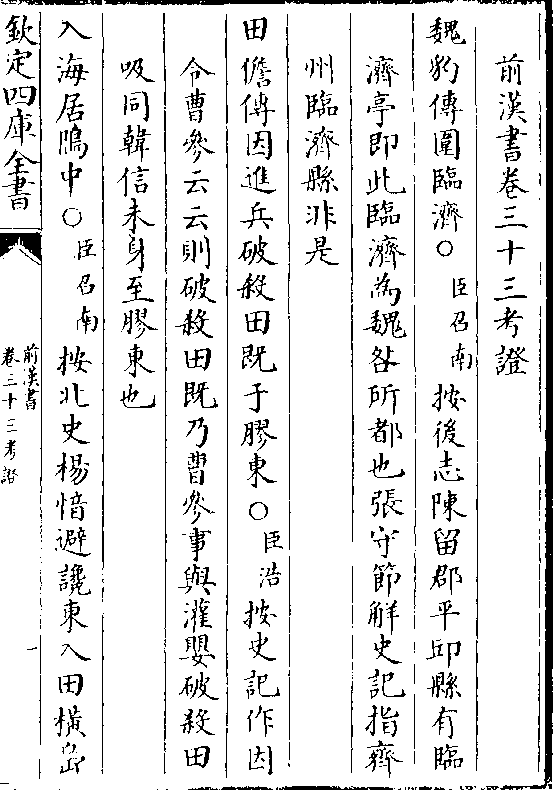 前漢書卷三十三考證
魏豹傳圍臨濟○臣召南按後志陳留郡平邱縣有臨
濟亭即此臨濟為魏咎所都也張守節解史記指齊
州臨濟縣非是
田儋傳因進兵破殺田既于膠東○臣浩按史記作因
令曹參云云則破殺田既乃曹參事與灌嬰破殺田
吸同韓信未身至膠東也
入海居隝中○臣召南按北史楊愔避讒東入田橫島
欽定四庫全書
前漢書
卷三十三考證
一